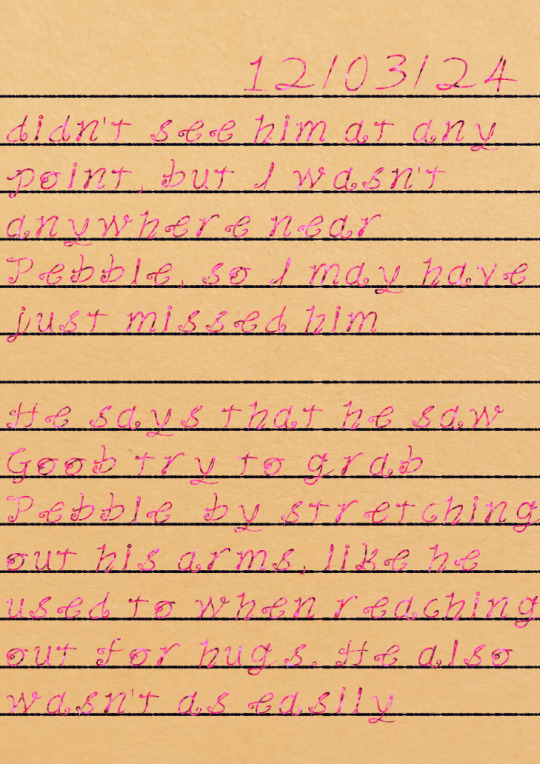 12/03/24
didn't see him at any
point, but I wasn't
anywhere near
Pebble, so I may have
just missed him
He says that he saw
Goob try to grab
Pebble by stretching
out his arms, like he
used to when reaching
out for hugs. He also
wasn't as easily